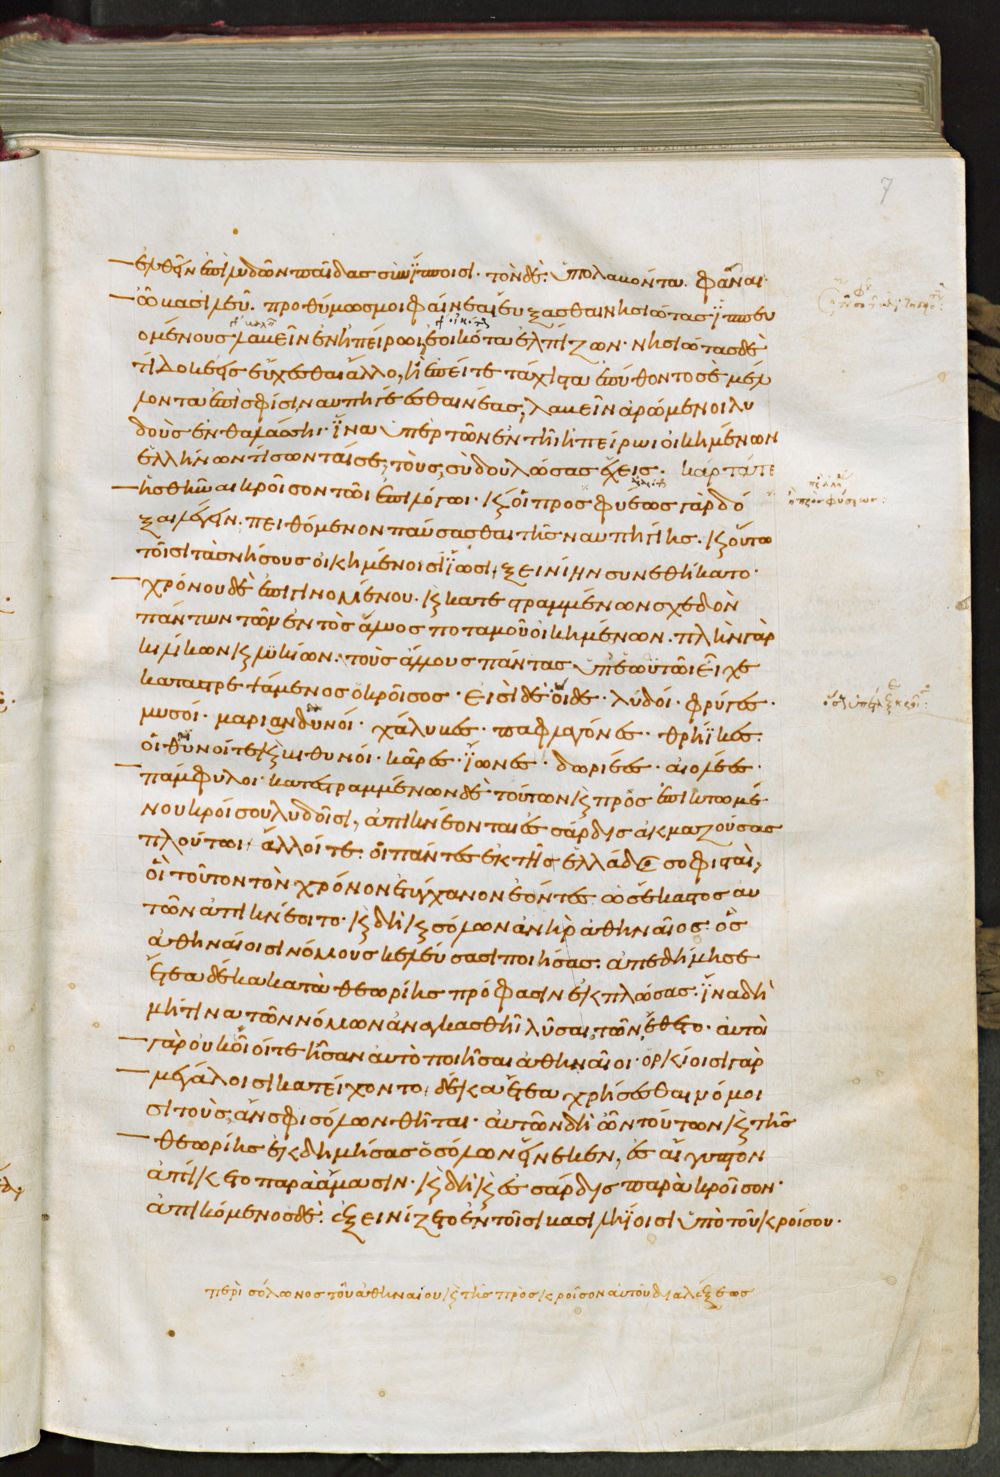 7
ἐλθεῖν ἐπὶ λυδῶν παῖδας σὺν ἵπποισι· τὸν δὲ ὑπολαβόντα φάναι·
ὦ βασιλεῦ· προθύμως μοι φαίνεαι εὔξασθαι νησιώτας ἱππευ
ομένους λαβεῖν ἐν ἠπείρωι, ἐοικότα ἐλπίζων· νησιώτας δὲ
τί δοκέεις εὔχεσθαι ἄλλο, ἢ ἐπείτε τάχιστα ἐπύθοντό σε μέλ
λοντα ἐπὶ σφίσι ναυπηγέεσθαι νέας, λαβεῖν ἀρώμενοι λυ
δοὺς ἐν θαλάσσηι· ἵνα ὑπὲρ τῶν ἐν τῆι ἠπείρωι οἰκημένων
ἑλλήνων τίσωνταί σε, τοὺς σὺ δουλώσας ἔχεις· κάρτα τε
ἡσθῆναι κροῖσον τῶι ἐπιλόγωι· καί οἱ προσφυέως γὰρ δό
ξαι λέγειν· πειθόμενον παύσασθαι τῆς ναυπηγίης· καὶ οὕτω
τοῖσι τὰς νήσους οἰκημένοισι ἴωσι, ξεινίην συνεθήκατο·
χρόνου δὲ ἐπιγινομένου· καὶ κατεστραμμένων σχεδὸν
πάντων τῶν ἐντὸς ἅλυος ποταμοῦ οἰκημένων· πλὴν γὰρ
κιλίκων καὶ λυκίων· τοὺς ἄλλους πάντας ὑπ' ἑωυτῶι εἶχε
καταστρεψάμενος ὁ κροῖσος· εἰσὶ δὲ οἵδε· λυδοί· φρύγες·
μυσοί· μαριανδυνοί· χάλυβες· παφλαγόνες· θρήϊκες·
οἱ θυνοί τε καὶ βιθυνοί· κᾶρες· ἴωνες· δωριέες· αἰολέες·
πάμφυλοι· κατεστραμμένων δὲ τούτων καὶ προσεπικτωμέ
νου κροίσου λυδοῖσι, ἀπικνέονται ἐς σάρδις ἀκμαζούσας
πλούτωι, ἄλλοι τε οἱ πάντες ἐκ τῆς ἑλλάδος σοφισταί,
οἳ τοῦτον τὸν χρόνον ἐτύγχανον ἐόντες ὡς ἕκαστος αὐ
τῶν ἀπικνέοιτο· καὶ δὴ καὶ σόλων ἀνὴρ ἀθηναῖος· ὃς
ἀθηναίοισι νόμους κελεύσασι ποιήσας· ἀπεδήμησε
ἔτεα δέκα κατὰ θεωρίης πρόφασιν ἐκπλώσας· ἵνα δὴ
μή τινα τῶν νόμων ἀναγκασθῆι λῦσαι τῶν ἔθετο· αὐτοὶ
γὰρ οὐκ οἷοί τε ἦσαν αὐτὸ ποιῆσαι ἀθηναῖοι· ὁρκίοισι γὰρ
μεγάλοισι κατείχοντο, δέκα ἔτεα χρήσεσθαι νόμοι
σι τοὺς ἄν σφι σόλων θῆται· αὐτῶν δὴ ὦν τούτων καὶ τῆς
θεωρίης ἐκδημήσας ὁ σόλων εἵνεκεν, ἐς αἴγυπτον
ἀπίκετο παρὰ ἄμασιν· καὶ δὴ καὶ ἐς σάρδις παρὰ κροῖσον·
ἀπικόμενος δὲ ἐξεινίζετο ἐν τοῖσι βασιληίοισι ὑπὸ τοῦ κροίσου·
περὶ σόλωνος τοῦ ἀθηναίου καὶ τῆς πρὸς κροῖσον αὐτοῦ διαλέξεως